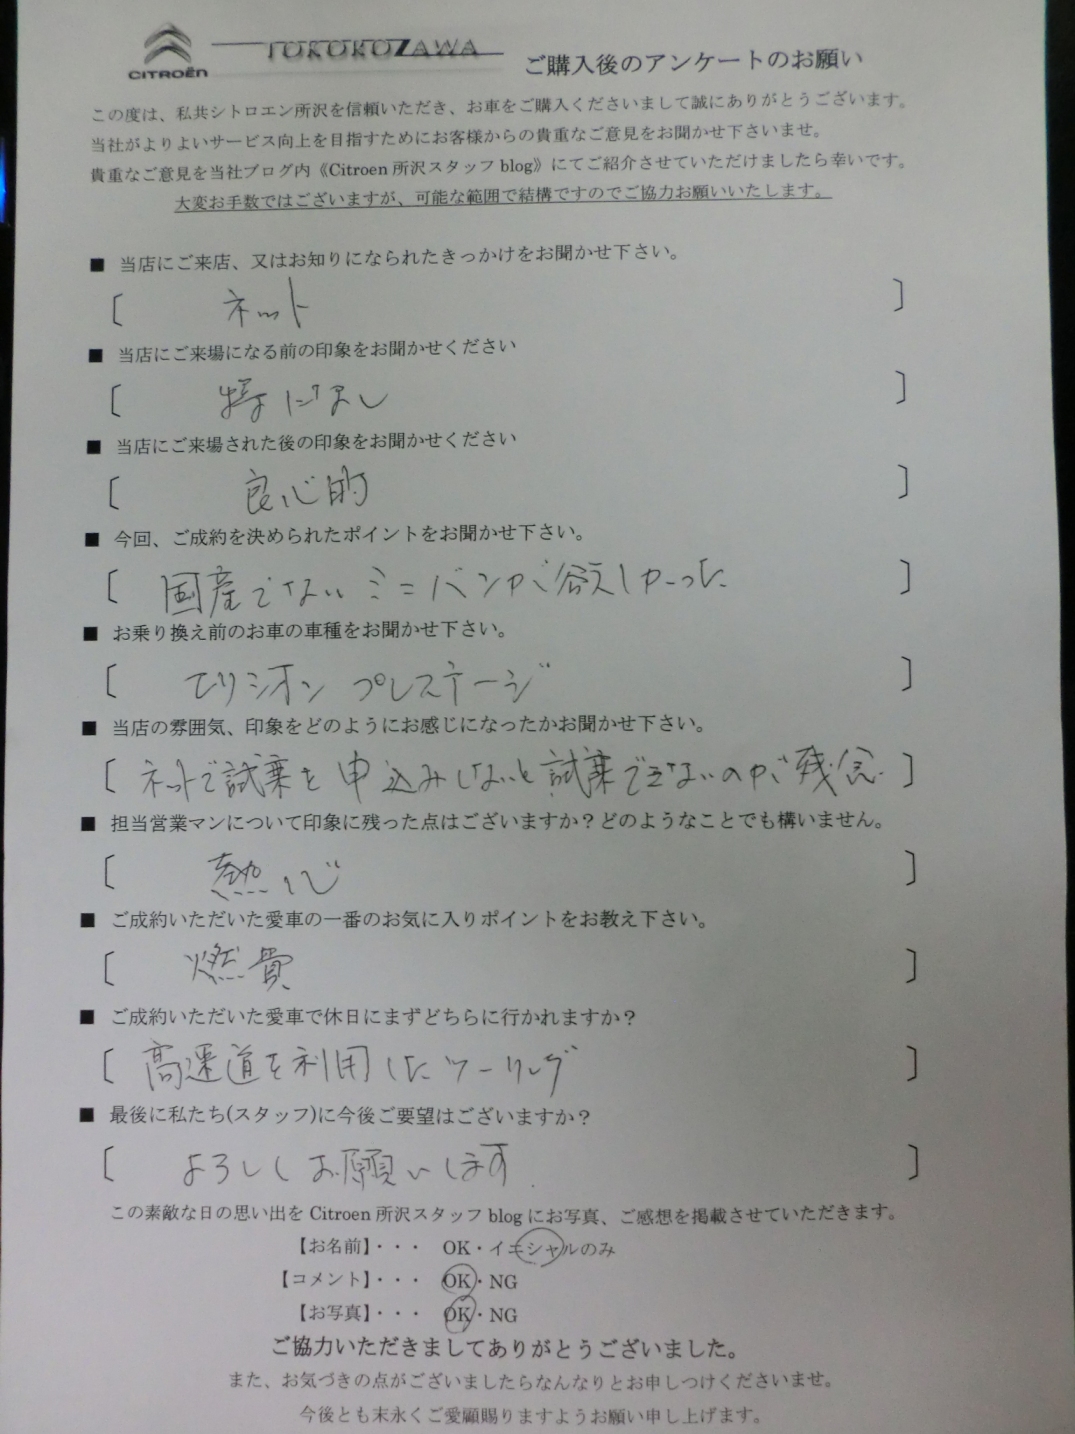 CITROËN TOKOROZAWA ご購入後のアンケートのお願い
この度は、私共シトロエン所沢を信頼いただき、お車をご購入くださいまして誠にありがとうございます。
当社がよりよいサービス向上を目指すためにお客様からの貴重なご意見をお聞かせ下さいませ。
貴重なご意見を当社ブログ内《Citroen 所沢スタッフ blog》にてご紹介させていただけましたら幸いです。
大変お手数ではございますが、可能な範囲で結構ですのでご協力お願いいたします。
■ 当店にご来店、又はお知りになられたきっかけをお聞かせ下さい。
〔 ネット 〕
■ 当店にご来場になる前の印象をお聞かせください
〔 特になし 〕
■ 当店にご来場された後の印象をお聞かせください
〔 良心的 〕
■ 今回、ご成約を決められたポイントをお聞かせ下さい。
〔 国産でないミニバンが欲しかった 〕
■ お乗り換え前のお車の車種をお聞かせ下さい。
〔 エリシオン プレステージ 〕
■ 当店の雰囲気、印象をどのようにお感じになったかお聞かせ下さい。
〔 ネットで試乗を申込みしないと試乗できないのが残念. 〕
■ 担当営業マンについて印象に残った点はございますか？どのようなことでも構いません。
〔 熱心 〕
■ ご成約いただいた愛車の一番のお気に入りポイントをお教え下さい。
〔 燃費 〕
■ ご成約いただいた愛車で休日にまずどちらに行かれますか？
〔 高速道を利用したツーリング 〕
■ 最後に私たち(スタッフ)に今後ご要望はございますか？
〔 よろしくお願いします. 〕
この素敵な日の思い出を Citroen 所沢スタッフ blog にお写真、ご感想を掲載させていただきます。
【お名前】・・・ OK・イニシャルのみ
【コメント】・・・ OK・NG
【お写真】・・・ OK・NG
ご協力いただきましてありがとうございました。
また、お気づきの点がございましたらなんなりとお申しつけくださいませ。
今後とも末永くご愛顧賜りますようお願い申し上げます。